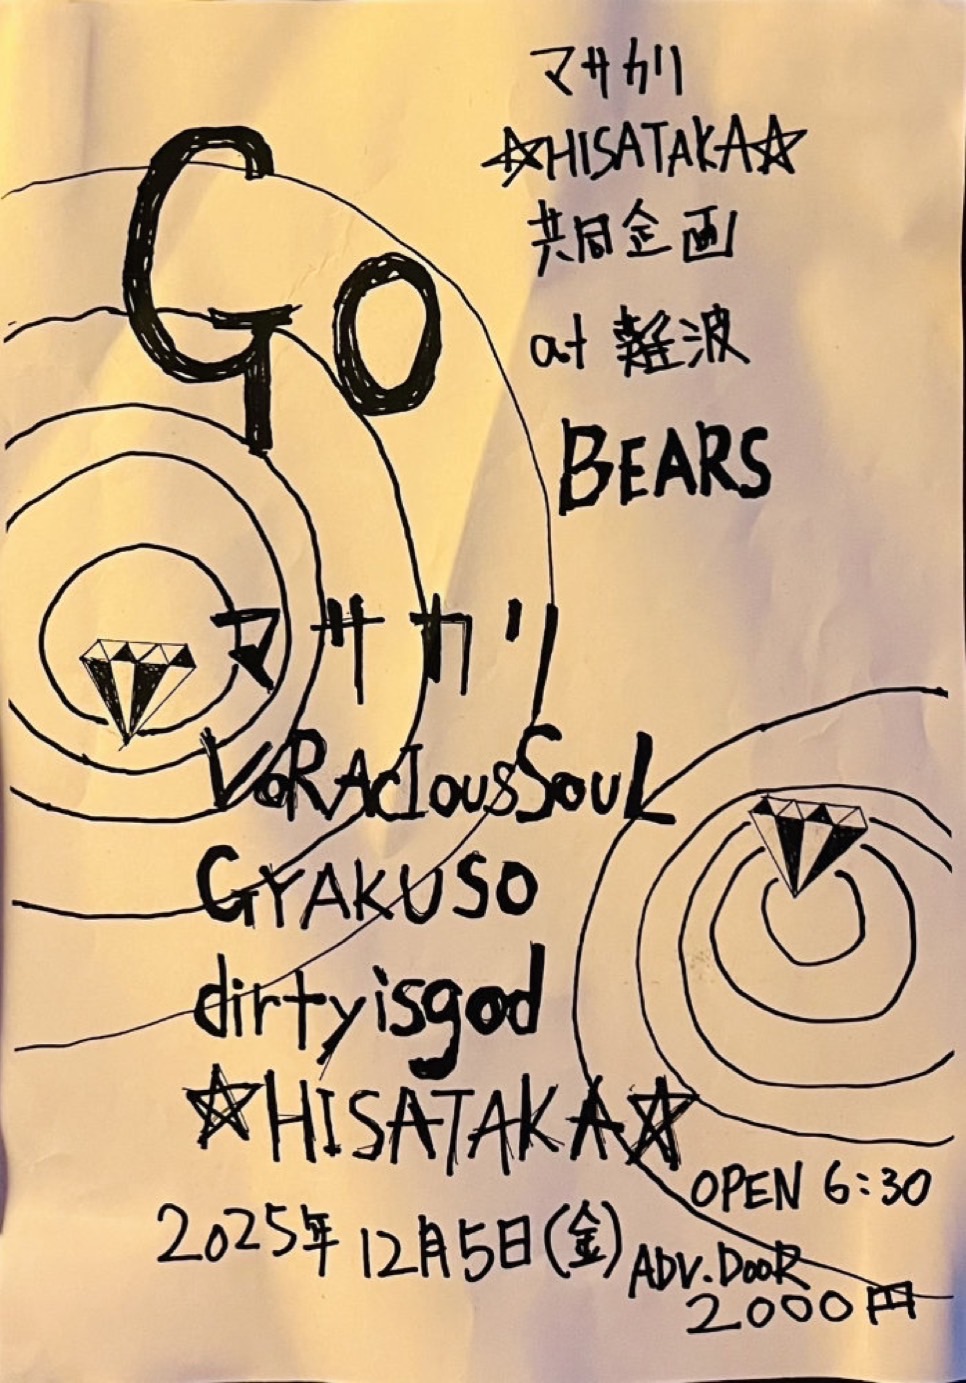 GO
マサカリ
☆HISATAKA☆
共同企画
at 難波
BEARS
マサカリ
VoRAcIousSouL
GYAKUSO
dirtyisgod
☆HISATAKA☆
OPEN 6:30
2025年 12月5日(金)
ADV.DooR
2000円